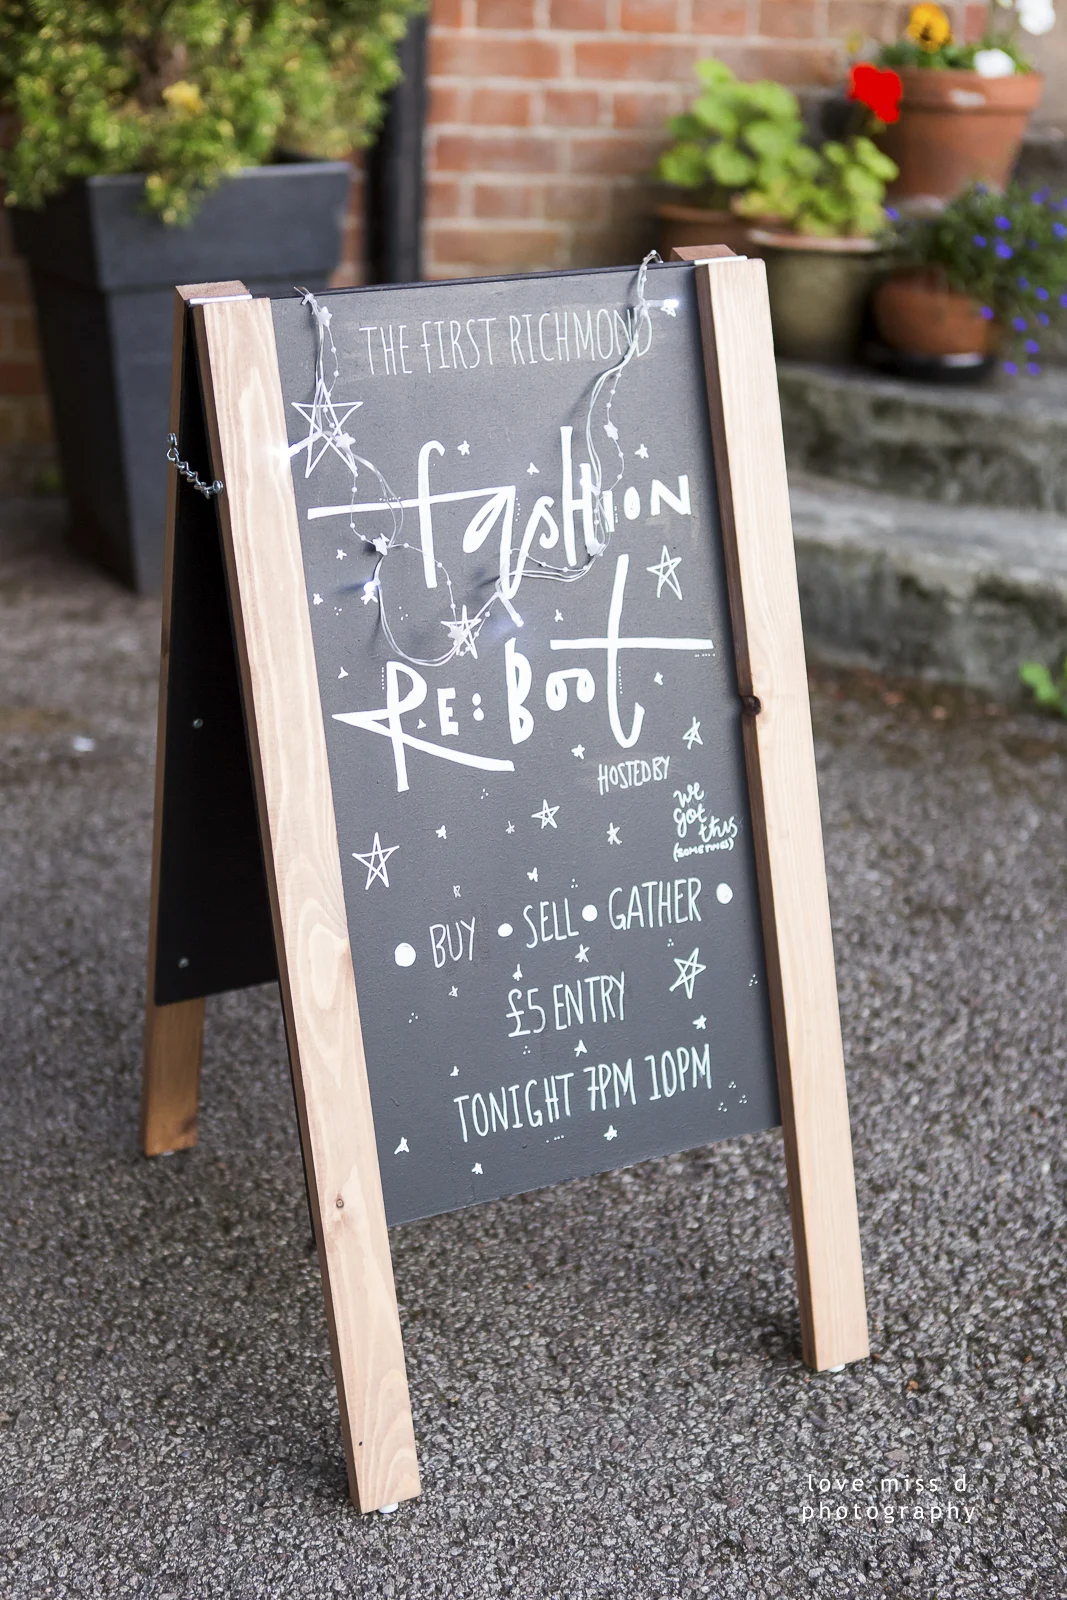 THE FIRST RICHMOND
fashion
RE:Boot
HOSTED BY
we
got
this
(SOMETIMES)
• BUY • SELL • GATHER •
£5 ENTRY
TONIGHT 7PM 10PM
love miss d
photography